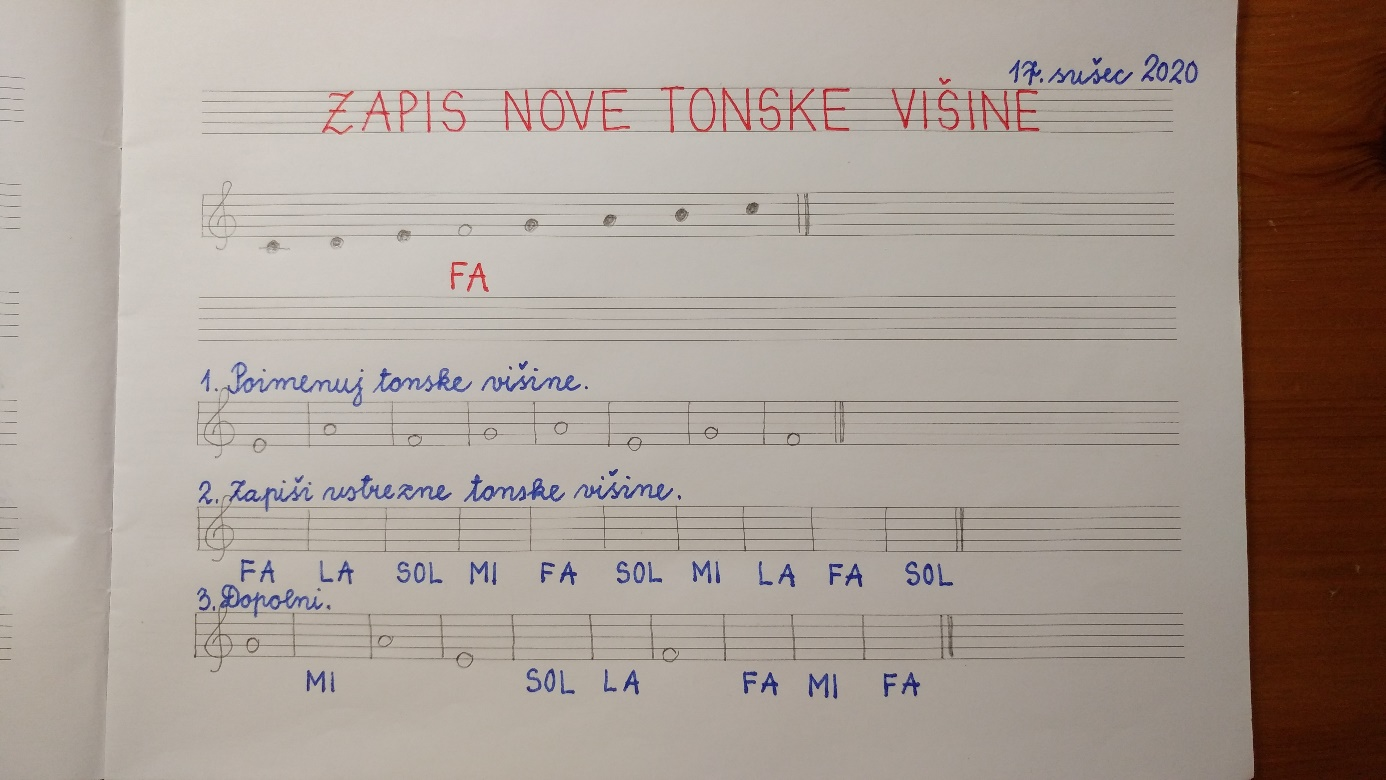 17. sušec 2020
ZAPIS NOVE TONSKE VIŠINE
FA
1. Poimenuj tonske višine.
2. Zapiši ustrezne tonske višine.
FA LA SOL MI FA SOL MI LA FA SOL
3. Dopolni.
MI SOL LA FA MI FA